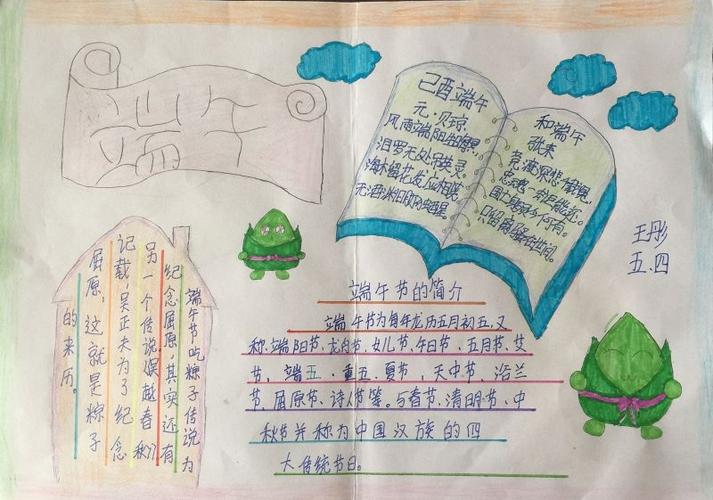 端午
己酉端午
元·贝琼
风雨端阳生晦冥,
汨罗无处吊英灵。
海榴花发应相笑,
无酒渊明亦独醒。
和端午
张耒
竞渡深悲千载冤,
忠魂一去讵能还。
国亡身殒今何有,
只留离骚在世间。
王彤
五.四
端午节吃粽子传说为
纪念屈原,其实还有
另一个传说越春秋
记载,吴夫为了纪念
屈原,这就是粽子
的来历。
端午节的简介
端午节为每年龙历五月初五,又
称、端阳节、龙舟节、女儿节、午日节、五月节、艾
节、端五、重五、夏节、天中节、浴兰
节、屈原节、诗人节等。与春节、清明节、中
秋节并称为中国汉族的四
大传统节日。